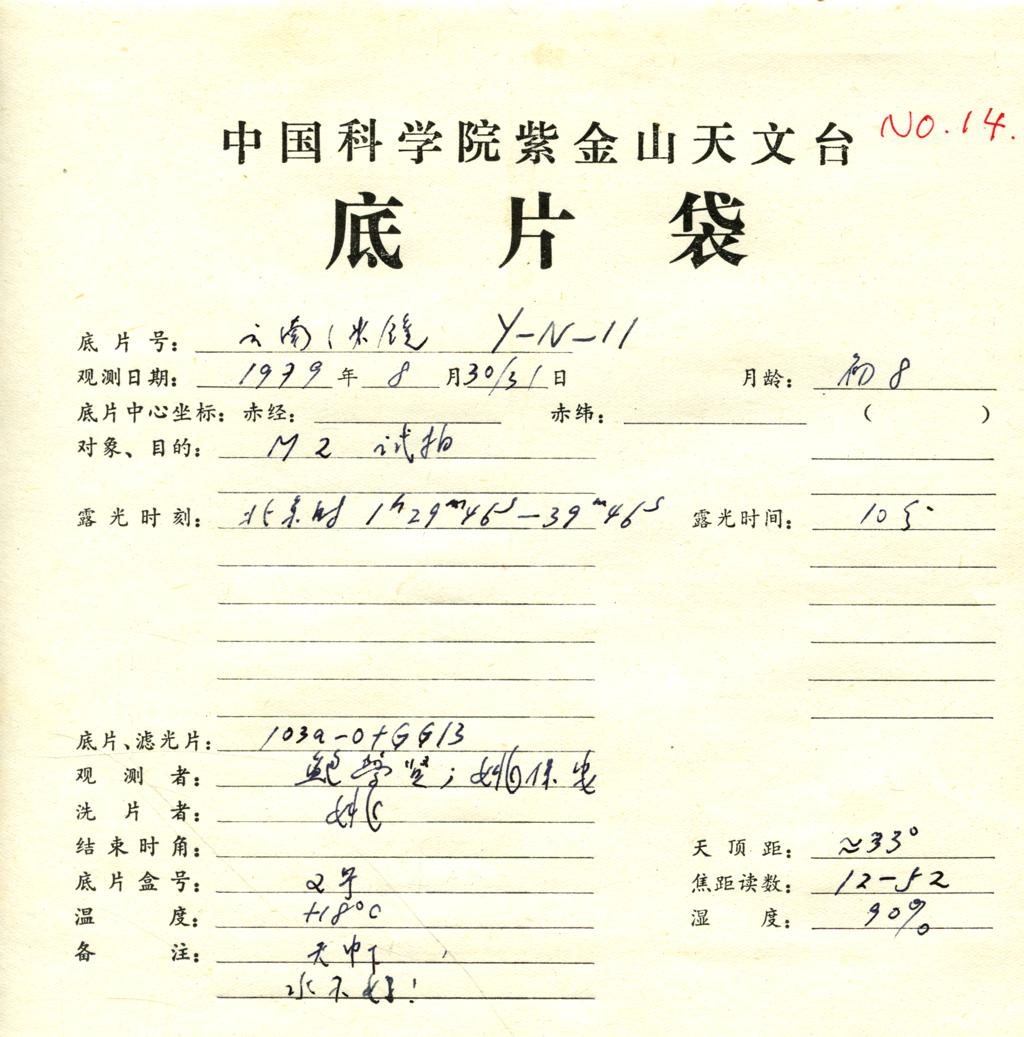 中国科学院紫金山天文台 NO.14.
底片袋
底片号： 云南1米镜 Y-N-11
观测日期： 1979年8月30/31日 月龄： 初8
底片中心坐标：赤经： 赤纬： （ ）
对象、目的： M2 试拍
露光时刻： 北京时 1h29m46s-39m46s 露光时间： 10分
底片、滤光片： 103a-O+GG13
观测者： 鲍学贤；姚保安
洗片者： 姚
结束时角： 天顶距： ≈33°
底片盒号： 2号 焦距读数： 12-52
温度： +18°C 湿度： 90%
备注： 天中下
冰不好！